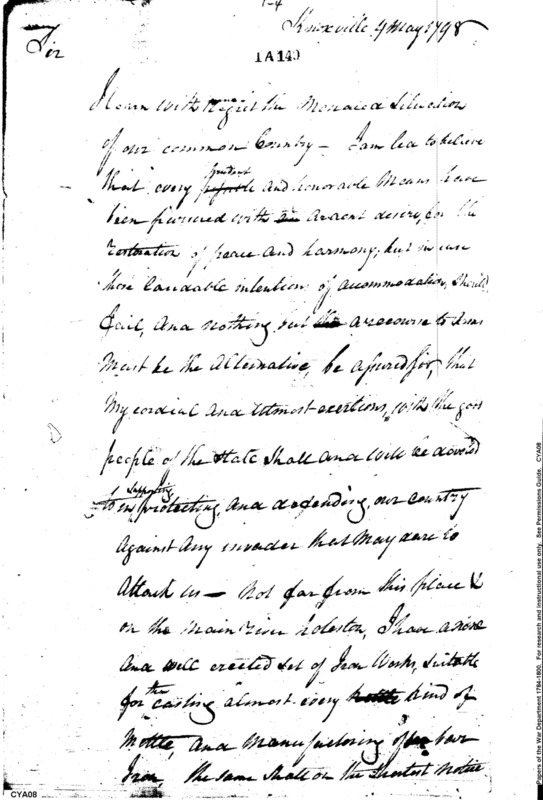 1-4
Knoxville 9 May 1798
Sir
1A149
I learn with regret the Menaced Situation
of our common Country — I am led to believe
prudent
that every and honorable Means have
been pursued with an ardent desire, for the
restoration of peace and harmony, but in case
those Laudable intention of accommodation, should
fail, and nothing but the a recourse to Arms
Must be the Alternative, be assured Sir, that
My cordial and utmost exertions, with the good
people of the State Shall and will be devoted
supporting
to in protecting, and defending, our Country
against any invader that May dare to
Attack us — Not far from this place &
on the Main river holston, I have a
and well erected Set of Iron Works, Suitable
the
for casting almost every kind of
Mettle, and Manufactoring of bar
Iron, the same Shall on the Shortest Notice
CYA08
Papers of the War Department 1784-1800. For research and instructional use only. See Permissions Guide. CYA08